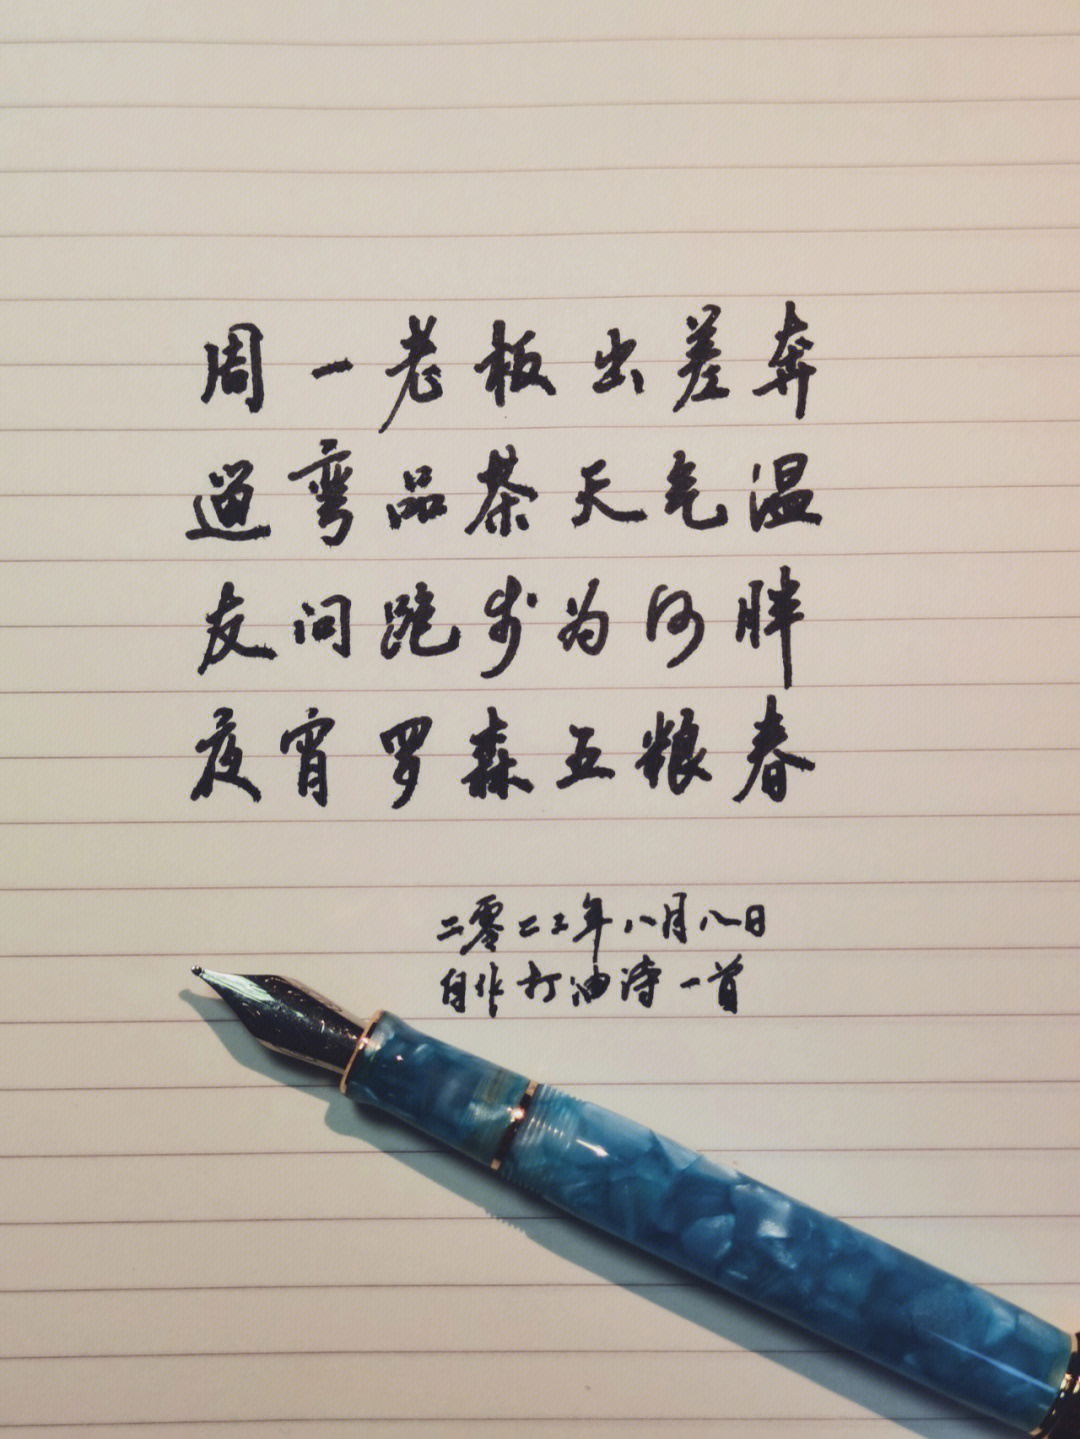 周一老板出差奔
遛弯品茶天气温
友问跑步为何胖
夜宵罗森五粮春
二零二二年八月八日
自作打油诗一首